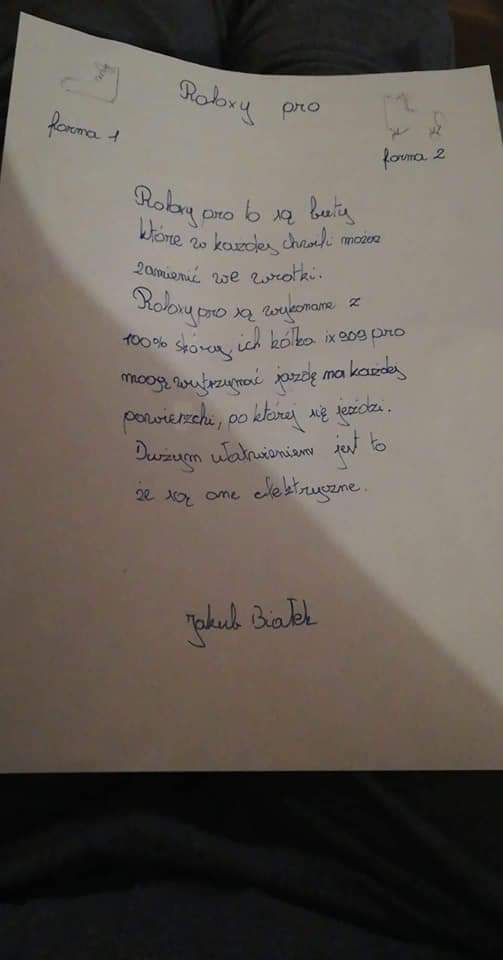 Roloxy pro
forma 1
forma 2
Roloxy pro to są buty
które w każdej chwili można
zamienić we wrotki.
Roloxy pro są wykonane z
100% skóry, ich kółka ix909 pro
mogą wytrzymać jazdę na każdej
powierzchi, po której się jeździ.
Dużym ułatwieniem jest to
że są one elektryczne.
Jakub Białek